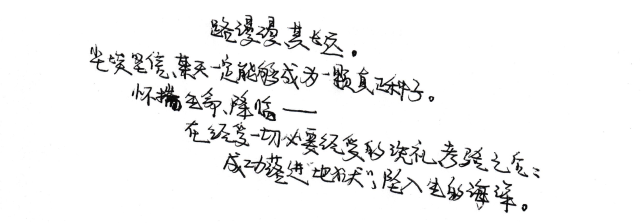 路漫漫其长远。
尘埃坚信、某天一定能够成为一颗真正种子。
怀揣生命、降临——
在经受一切必要经受的洗礼考验之后：
成功落进“地狱”，坠入生的海深。